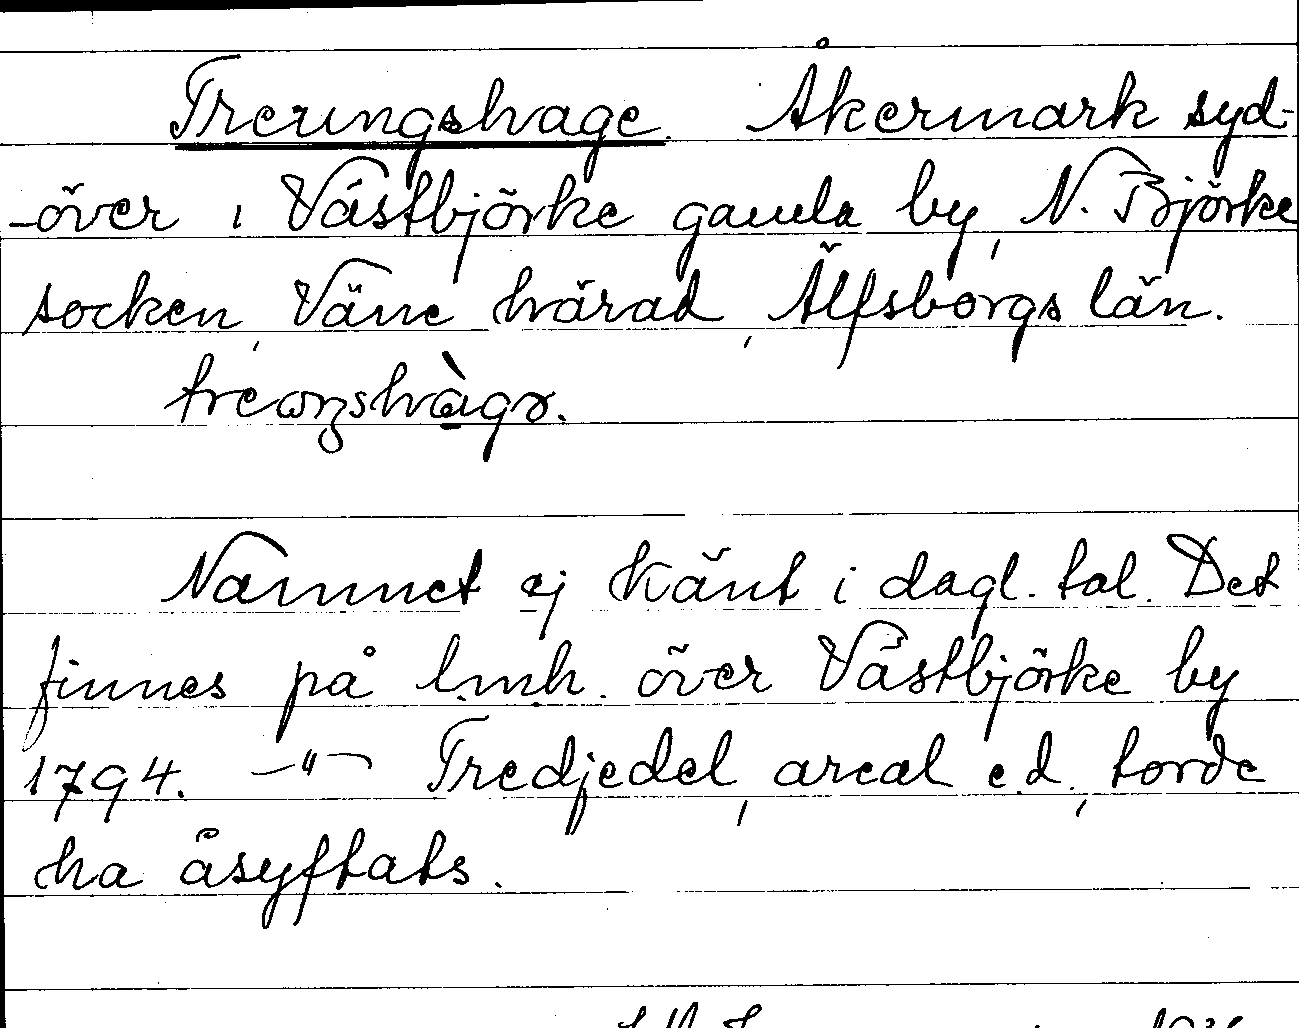 Treungshage. Åkermark syd-
-över i Västbjörke gamla by, N. Björke
socken, Väne härad, Älfsborgs län.
Namnet ej känt i dagl. tal. Det
finnes på l.mh. över Västbjörke by
1794. —"— Tredjedel, areal e.d., torde
ha åsyftats.